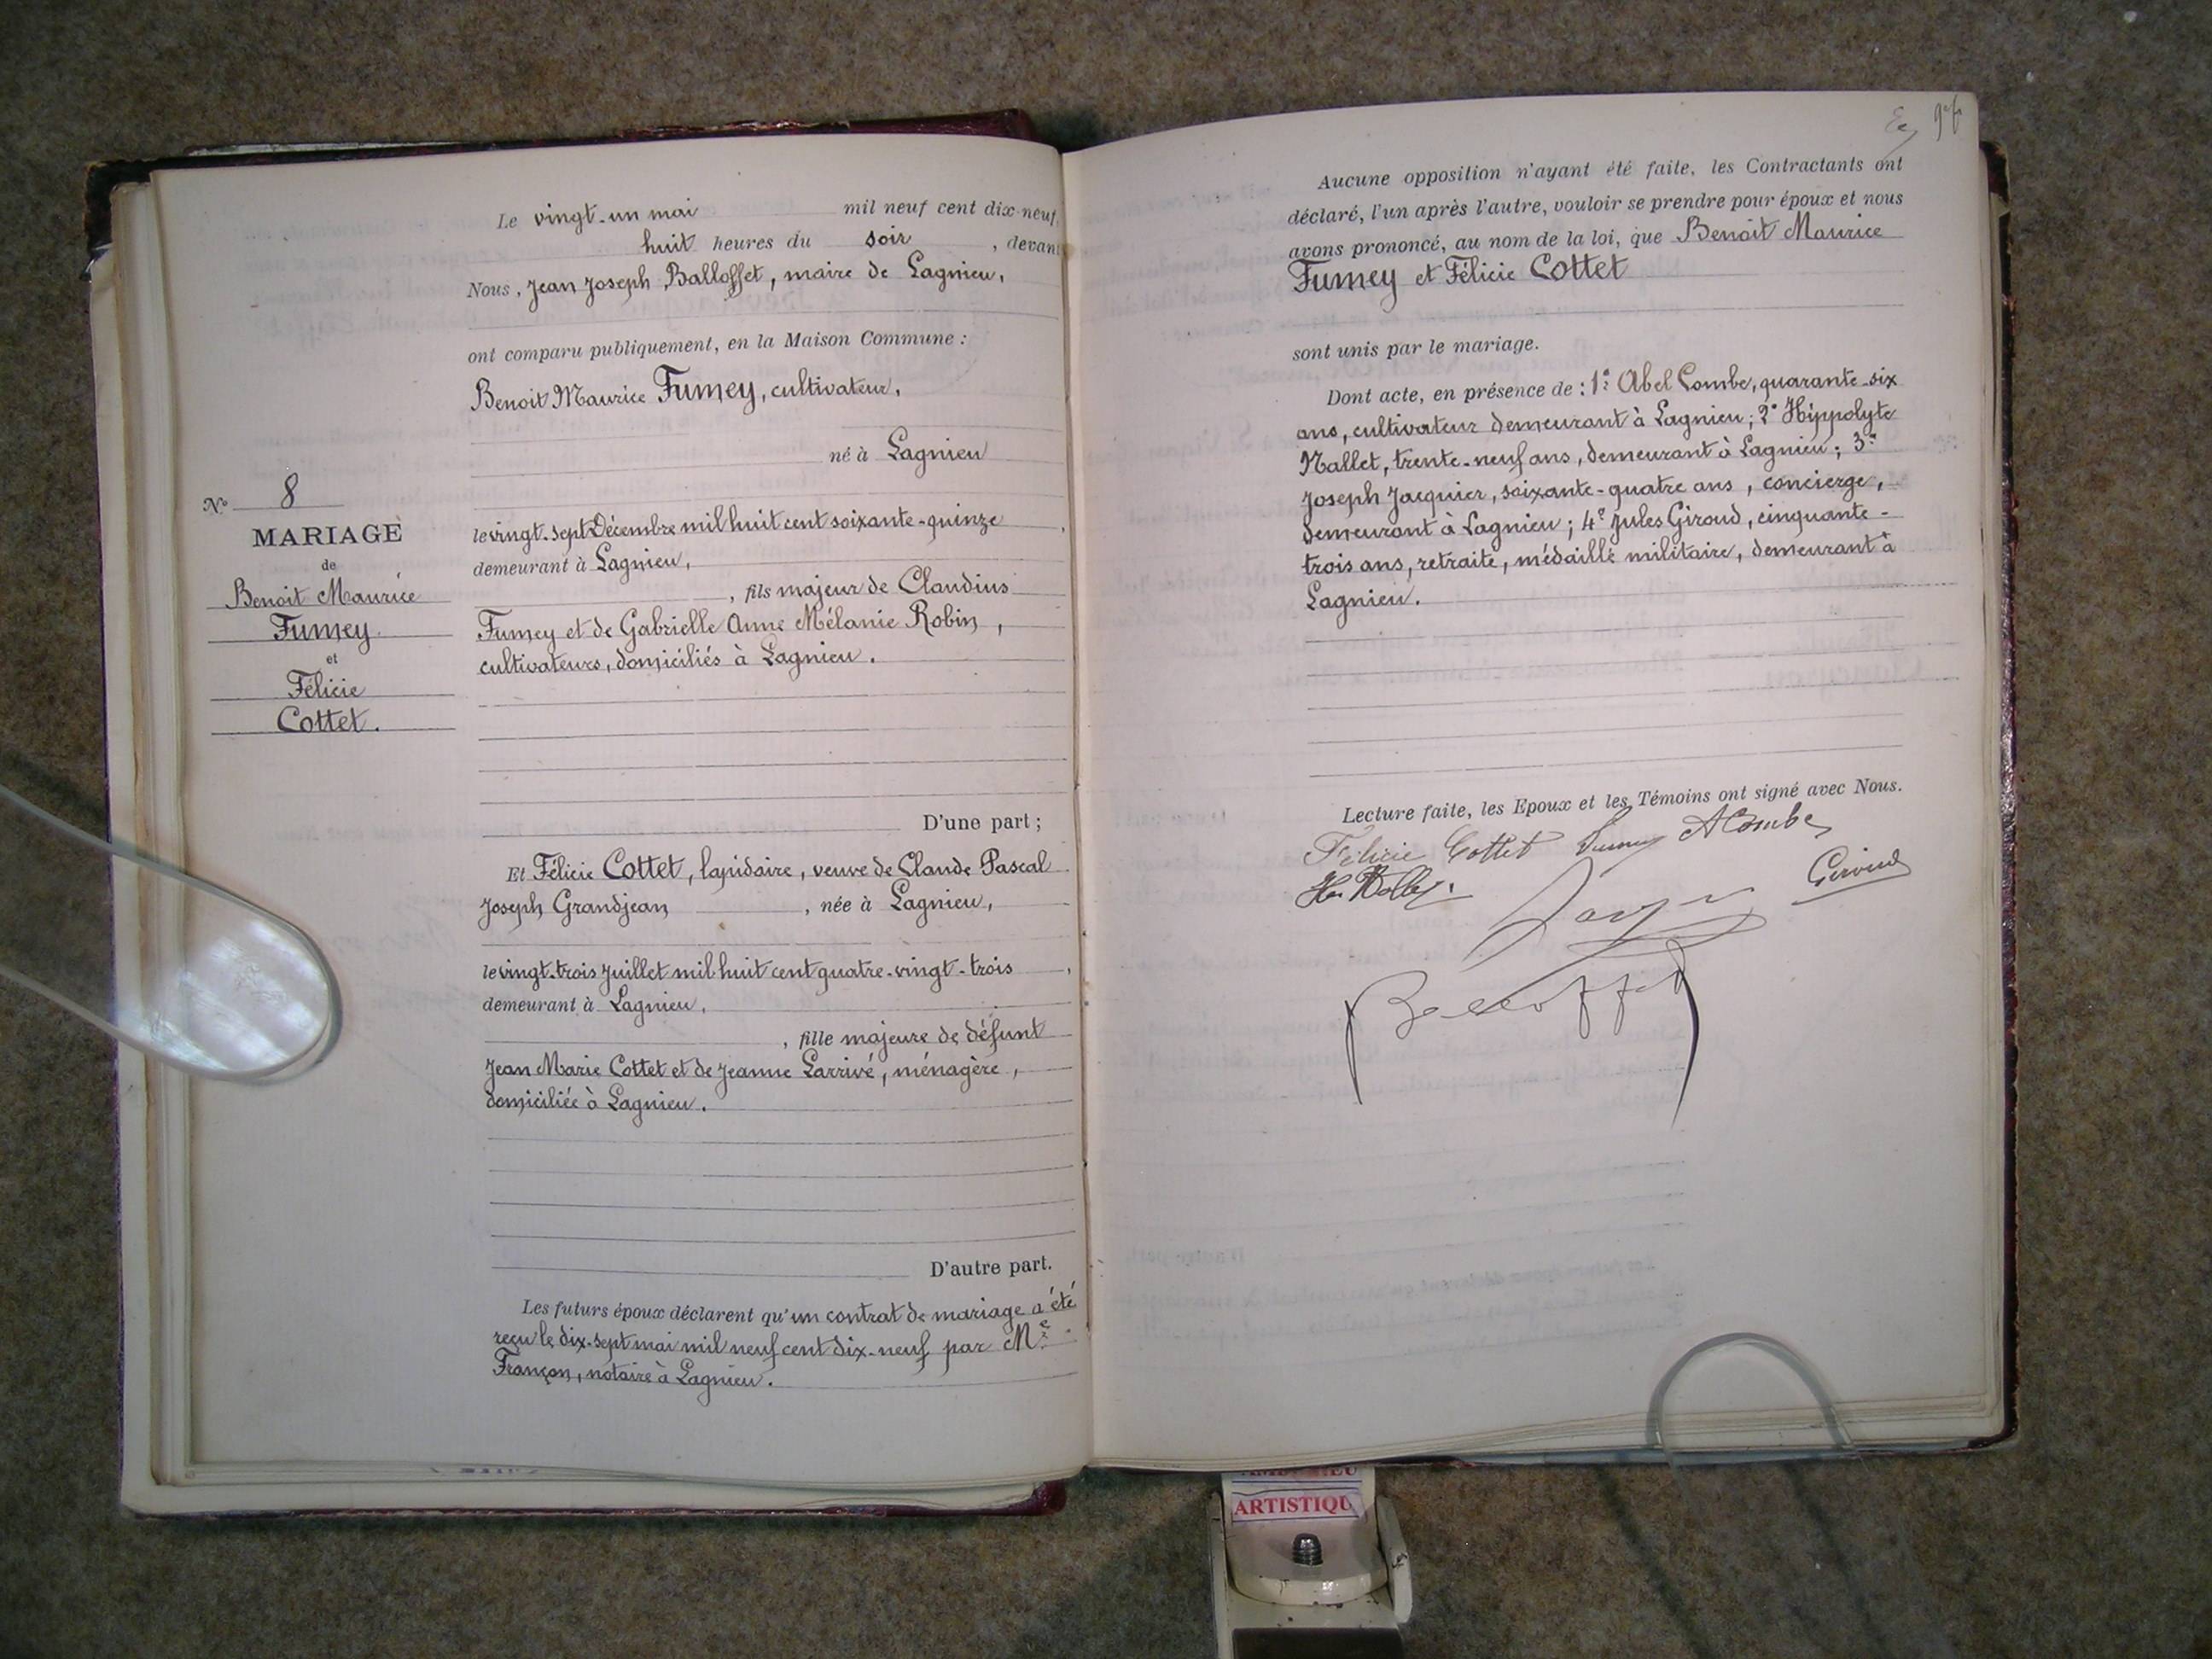 N° 8
MARIAGE
de
Benoit Maurice
Fumey
et
Félicie
Cottet.
Le vingt-un mai mil neuf cent dix-neuf,
huit heures du soir, devant
Nous, Jean Joseph Balloffet, maire de Lagnieu,
ont comparu publiquement, en la Maison Commune :
Benoit Maurice Fumey, cultivateur,
né à Lagnieu
le vingt-sept Décembre mil huit cent soixante-quinze,
demeurant à Lagnieu,
, fils majeur de Claudius
Fumey et de Gabrielle Anne Mélanie Robin,
cultivateurs, domiciliés à Lagnieu.
D'une part ;
Et Félicie Cottet, lapidaire, veuve de Claude Pascal
Joseph Grandjean, née à Lagnieu,
le vingt-trois Juillet mil huit cent quatre-vingt-trois,
demeurant à Lagnieu,
, fille majeure de défunt
Jean Marie Cottet et de Jeanne Larrivé, ménagère,
domiciliée à Lagnieu.
D'autre part.
Les futurs époux déclarent qu'un contrat de mariage a été
reçu le dix-sept mai mil neuf cent dix-neuf par Me
Françon, notaire à Lagnieu.
Aucune opposition n'ayant été faite, les Contractants ont
déclaré, l'un après l'autre, vouloir se prendre pour époux et nous
avons prononcé, au nom de la loi, que Benoit Maurice
Fumey et Félicie Cottet
sont unis par le mariage.
Dont acte, en présence de : 1° Abel Combe, quarante-six
ans, cultivateur demeurant à Lagnieu ; 2° Hippolyte
Mallet, trente-neuf ans, demeurant à Lagnieu ; 3°
Joseph Jacquier, soixante-quatre ans, concierge,
demeurant à Lagnieu ; 4° Jules Giroud, cinquante-
trois ans, retraité, médaillé militaire, demeurant à
Lagnieu.
Lecture faite, les Epoux et les Témoins ont signé avec Nous.
Félicie Cottet Fumey A Combe
Giroud
Balloffet
ARTISTIQU